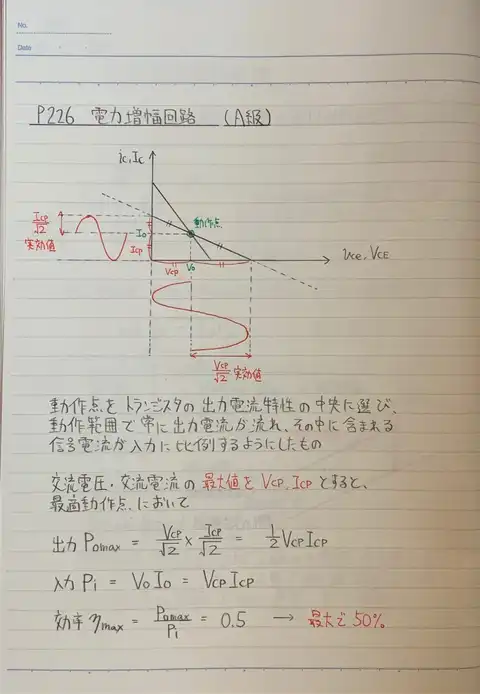 No.
Date
P226 電力増幅回路 (A級)
ic, Ic
Icp/√2
実効値
Io
Icp
動作点
Vcp
Vo
vce, VCE
Vcp/√2 実効値
動作点をトランジスタの出力電流特性の中央に選び、
動作範囲で常に出力電流が流れ、その中に含まれる
信号電流が入力に比例するようにしたもの
交流電圧・交流電流の最大値をVcp, Icpとすると、
最適動作点において
出力 Pomax = Vcp/√2 × Icp/√2 = 1/2 VcpIcp
入力 Pi = VoIo = VcpIcp
効率 ηmax = Pomax/Pi = 0.5 → 最大で50%